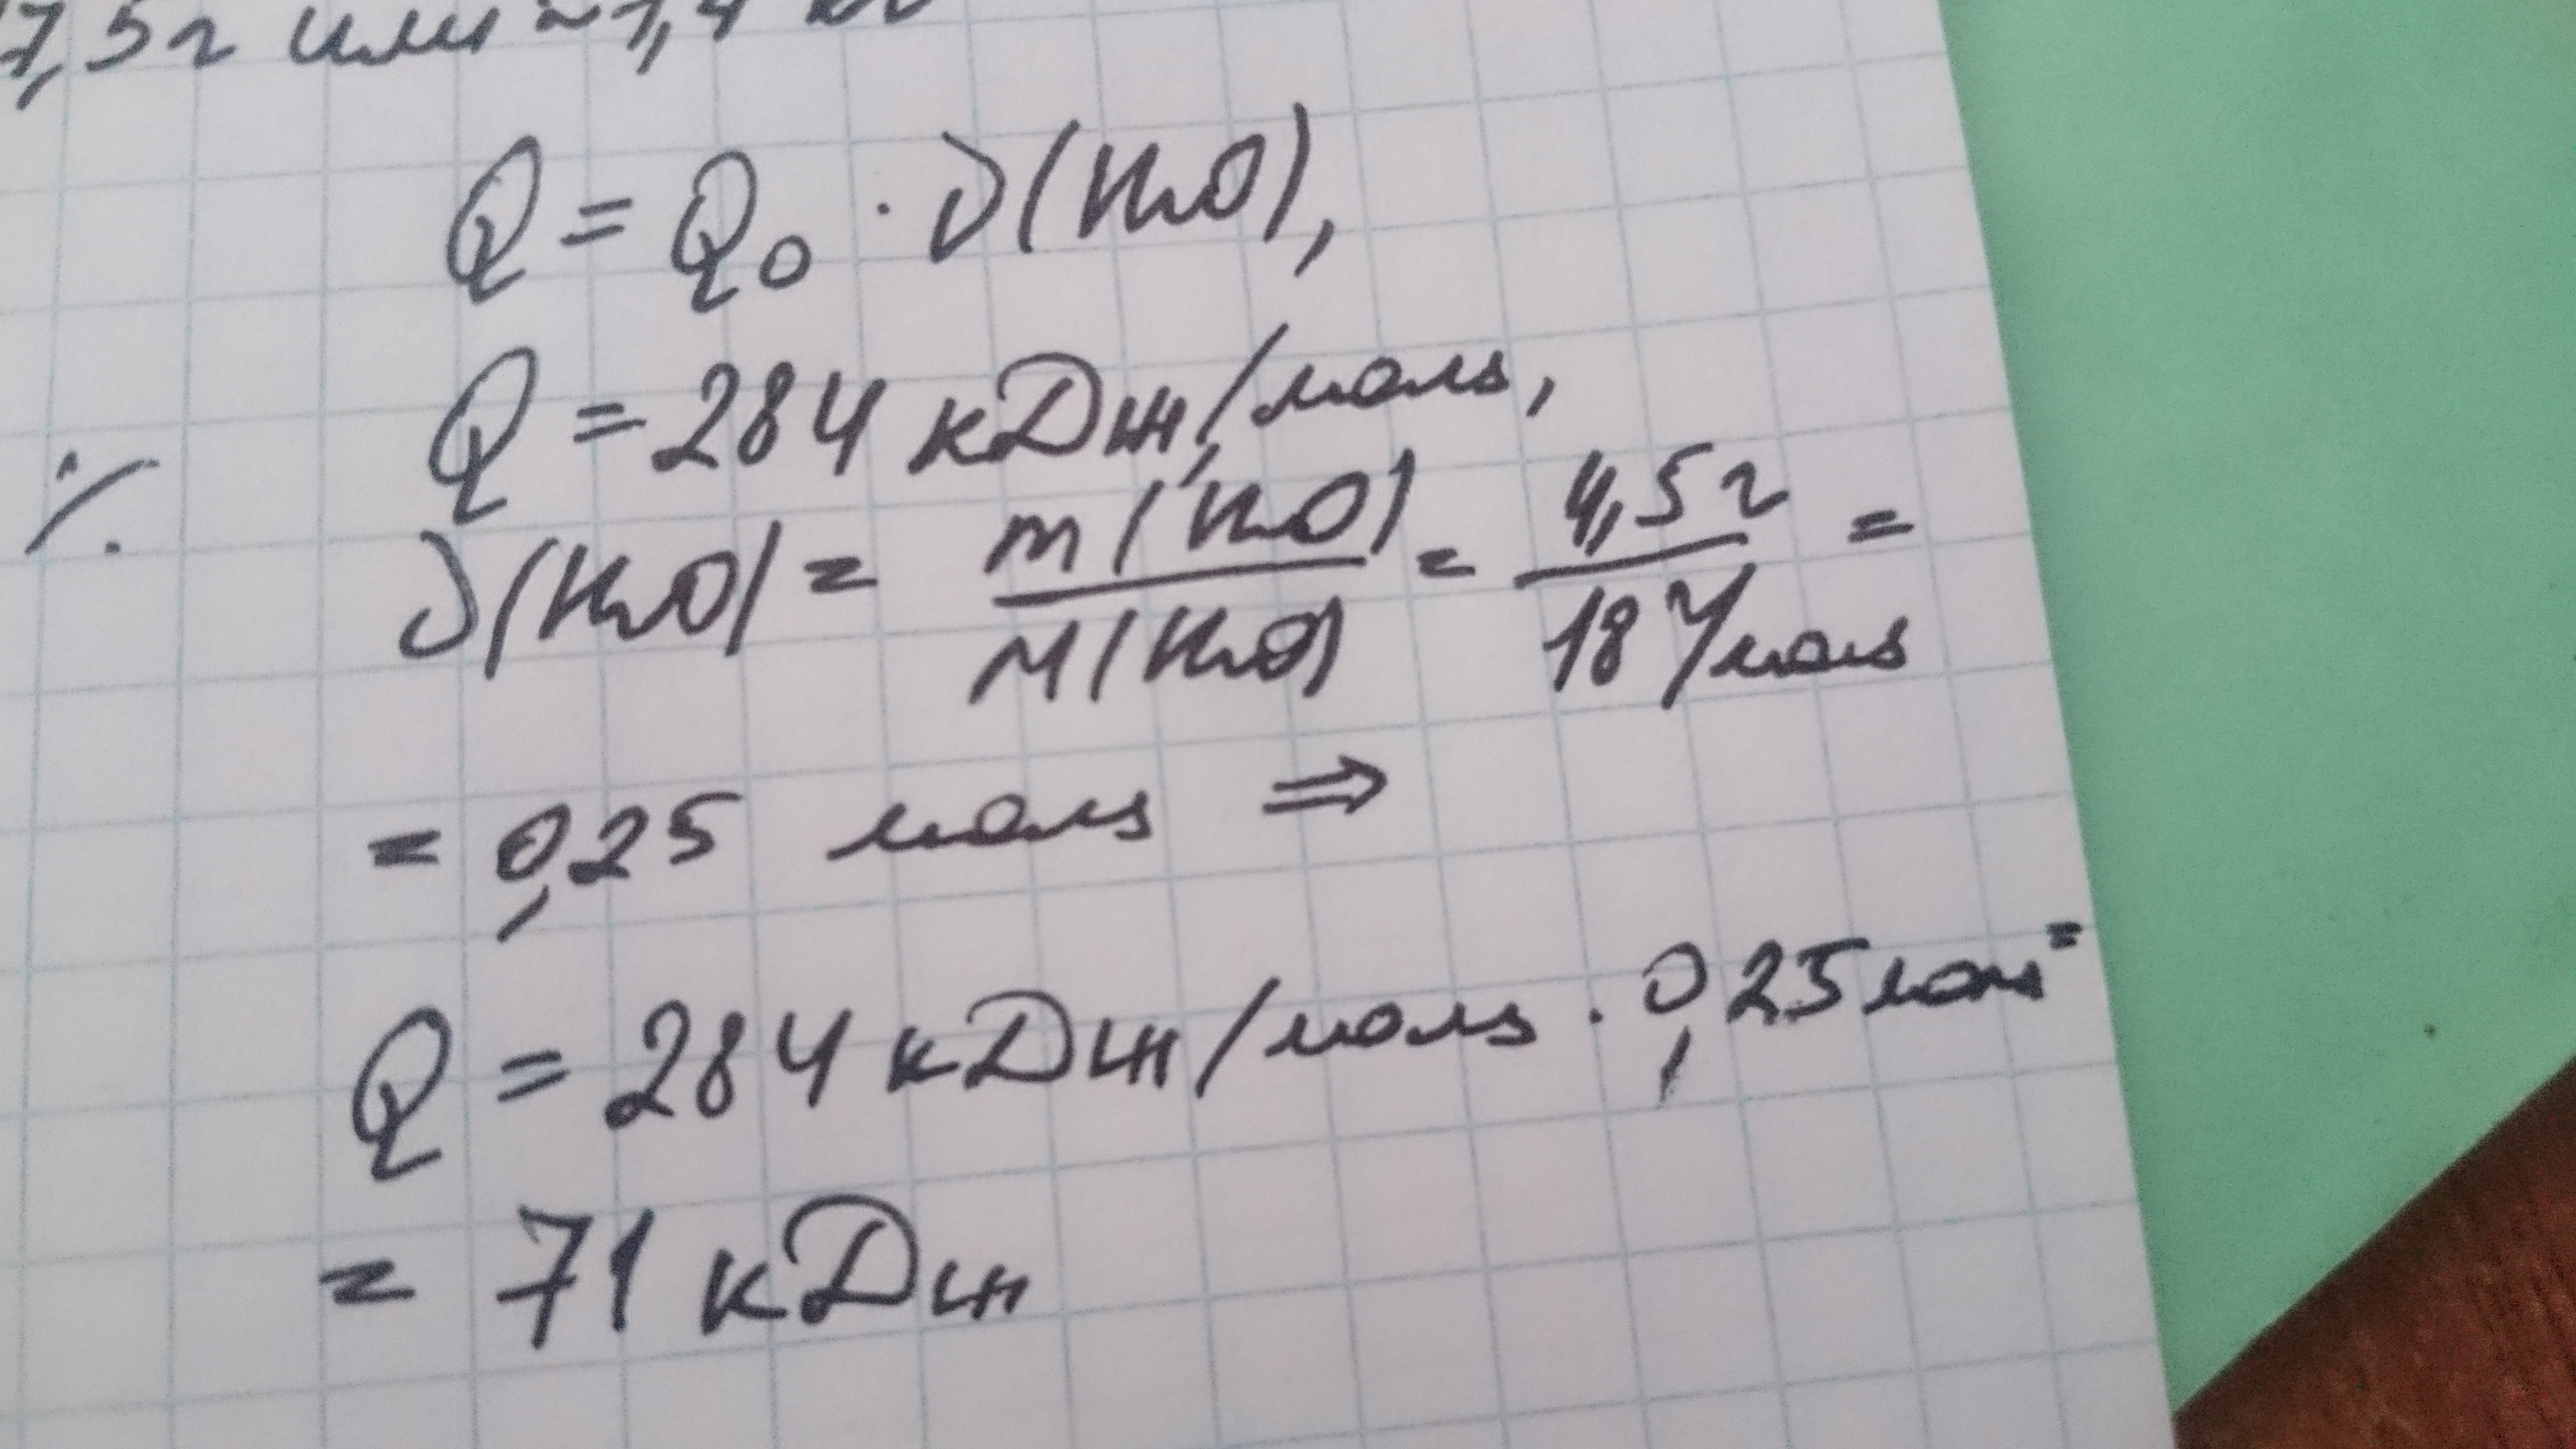 7,5г или ~7,4
Q = Q₀ · ν(H₂O),
Q = 284 кДж/моль,
ν(H₂O) = m(H₂O)/M(H₂O) = 4,5г/18 г/моль =
= 0,25 моль ⇒
Q = 284 кДж/моль · 0,25 моль =
= 71 кДж